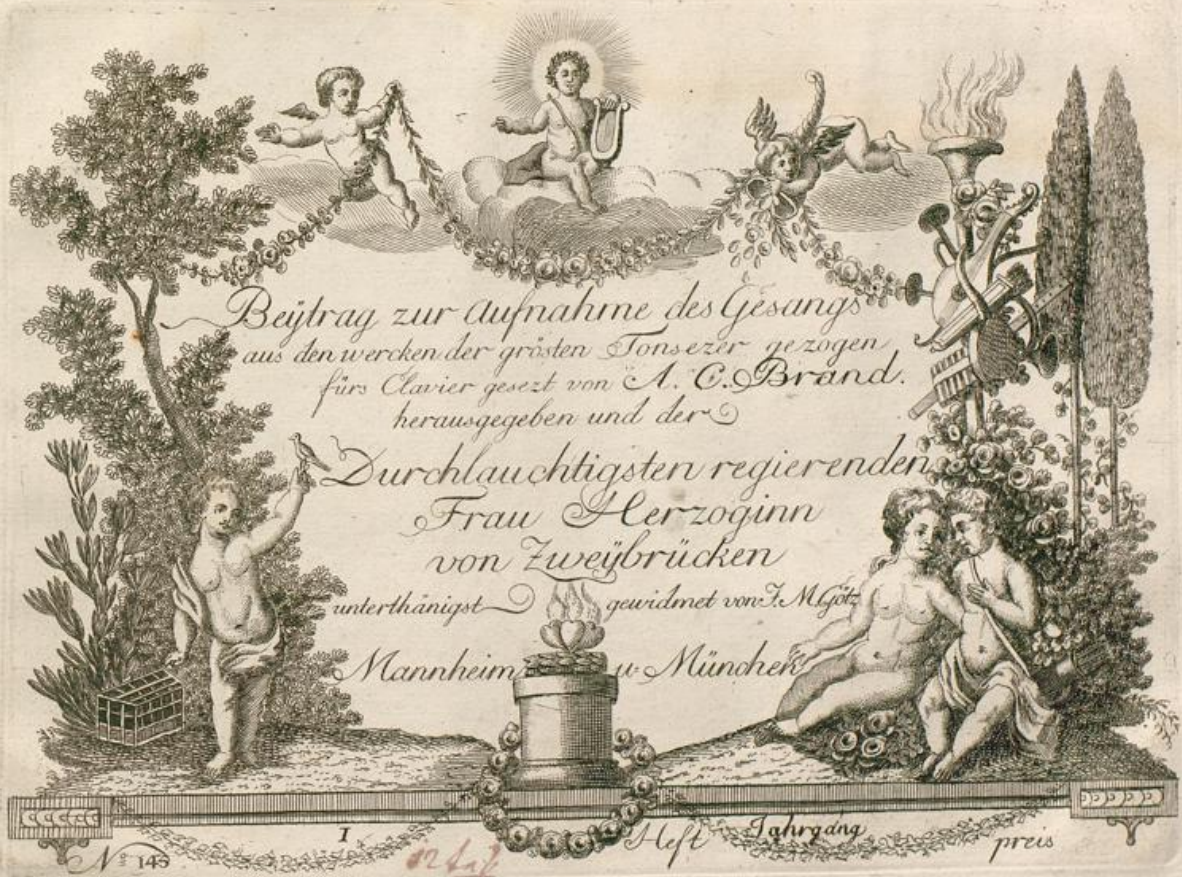 Beÿtrag zur Aufnahme des Gesangs
aus den wercken der grösten Tonsezer gezogen
fürs Clavier gesezt von A. C. Brand.
herausgegeben und der
Durchlauchtigsten regierenden
Frau Herzoginn
von Zweÿbrücken
unterthänigst gewidmet von J. M. Götz
Mannheim u. München
I Heft Jahrgang preis
No 145